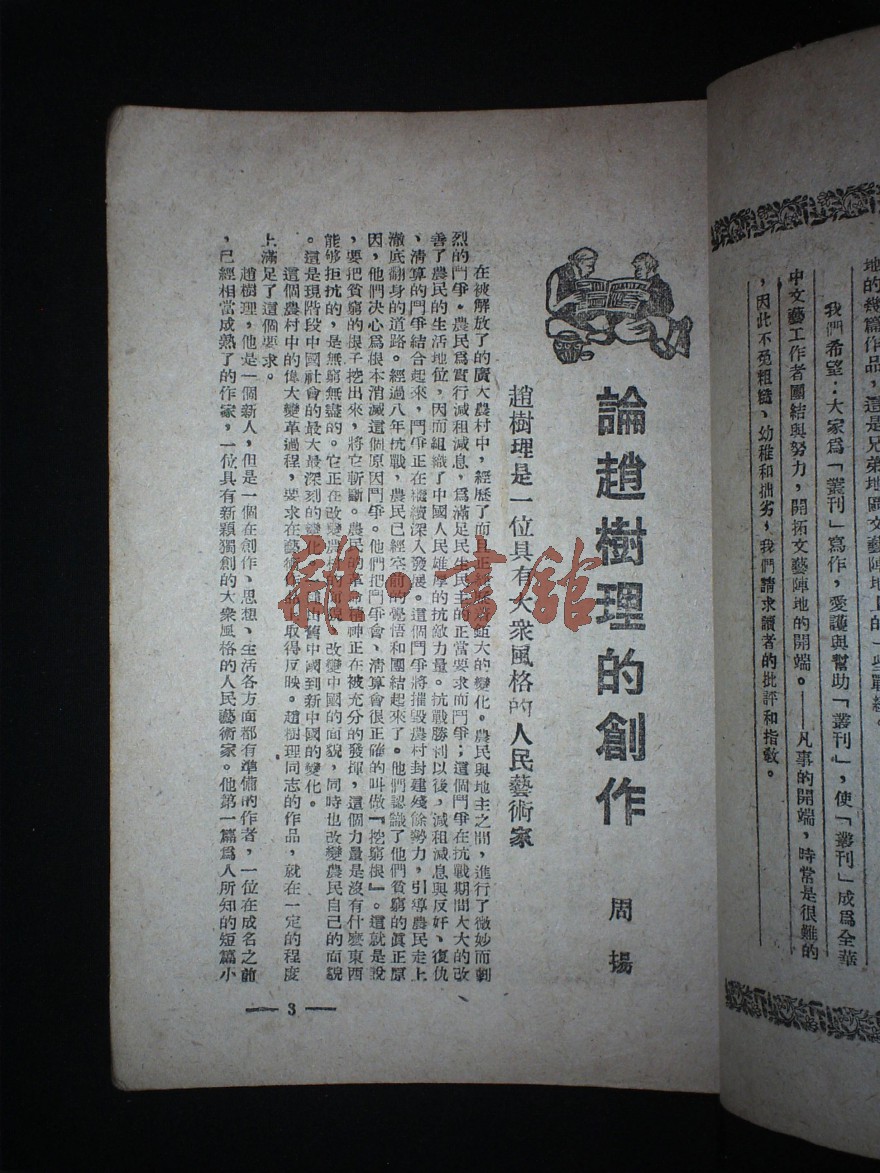 地的幾篇作品，這是兄弟地區文藝陣地
我們希望：大家爲「叢刊」寫作，愛護與幫助「叢刊」，使「叢刊」成爲全華
中文藝工作者團結與努力，開拓文藝陣地的開端。——凡事的開端，時常是很難的
，因此不免粗糙、幼稚和拙劣，我們請求讀者的批評和指敎。
論趙樹理的創作
周揚
趙樹理是一位具有大衆風格的人民藝術家
在被解放了的廣大農村中，經歷了而且正經歷着鉅大的變化。農民與地主之間，進行了微妙而劇
烈的鬥爭。農民爲實行減租減息，爲滿足民生民主的正當要求而鬥爭；這個鬥爭在抗戰期間大大的改
善了農民的生活地位，因而組織了中國人民雄厚的抗敵力量。抗戰勝利以後，減租減息與反奸、復仇
、清算的鬥爭結合起來，鬥爭正在繼續深入發展。這個鬥爭將摧毀農村封建殘餘勢力，引導農民走上
澈底翻身的道路。經過八年抗戰，農民已經空前的覺悟和團結起來了。他們認識了他們貧窮的眞正原
因，他們決心爲根本消滅這個原因鬥爭。他們把鬥爭會、清算會很正確的叫做『挖窮根』。這就是說
，要把貧窮的根子挖出來，將它斬斷。農民的革命精神正在被充分的發揮，這個力量是沒有什麼東西
能够拒抗的，是無窮無盡的。它正在改變農村的面貌，改變中國的面貌，同時也改變農民自己的面貌
。這是現階段中國社會的最大最深刻的變化，一種由舊中國到新中國的變化。
這個農村中的偉大變革過程，要求在藝術作品上取得反映。趙樹理同志的作品，就在一定的程度
上滿足了這個要求。
趙樹理，他是一個新人，但是一個在創作、思想、生活各方面都有準備的作者，一位在成名之前
，已經相當成熟了的作家，一位具有新穎獨創的大衆風格的人民藝術家。他第一篇爲人所知的短篇小
— 3 —
雜·書館